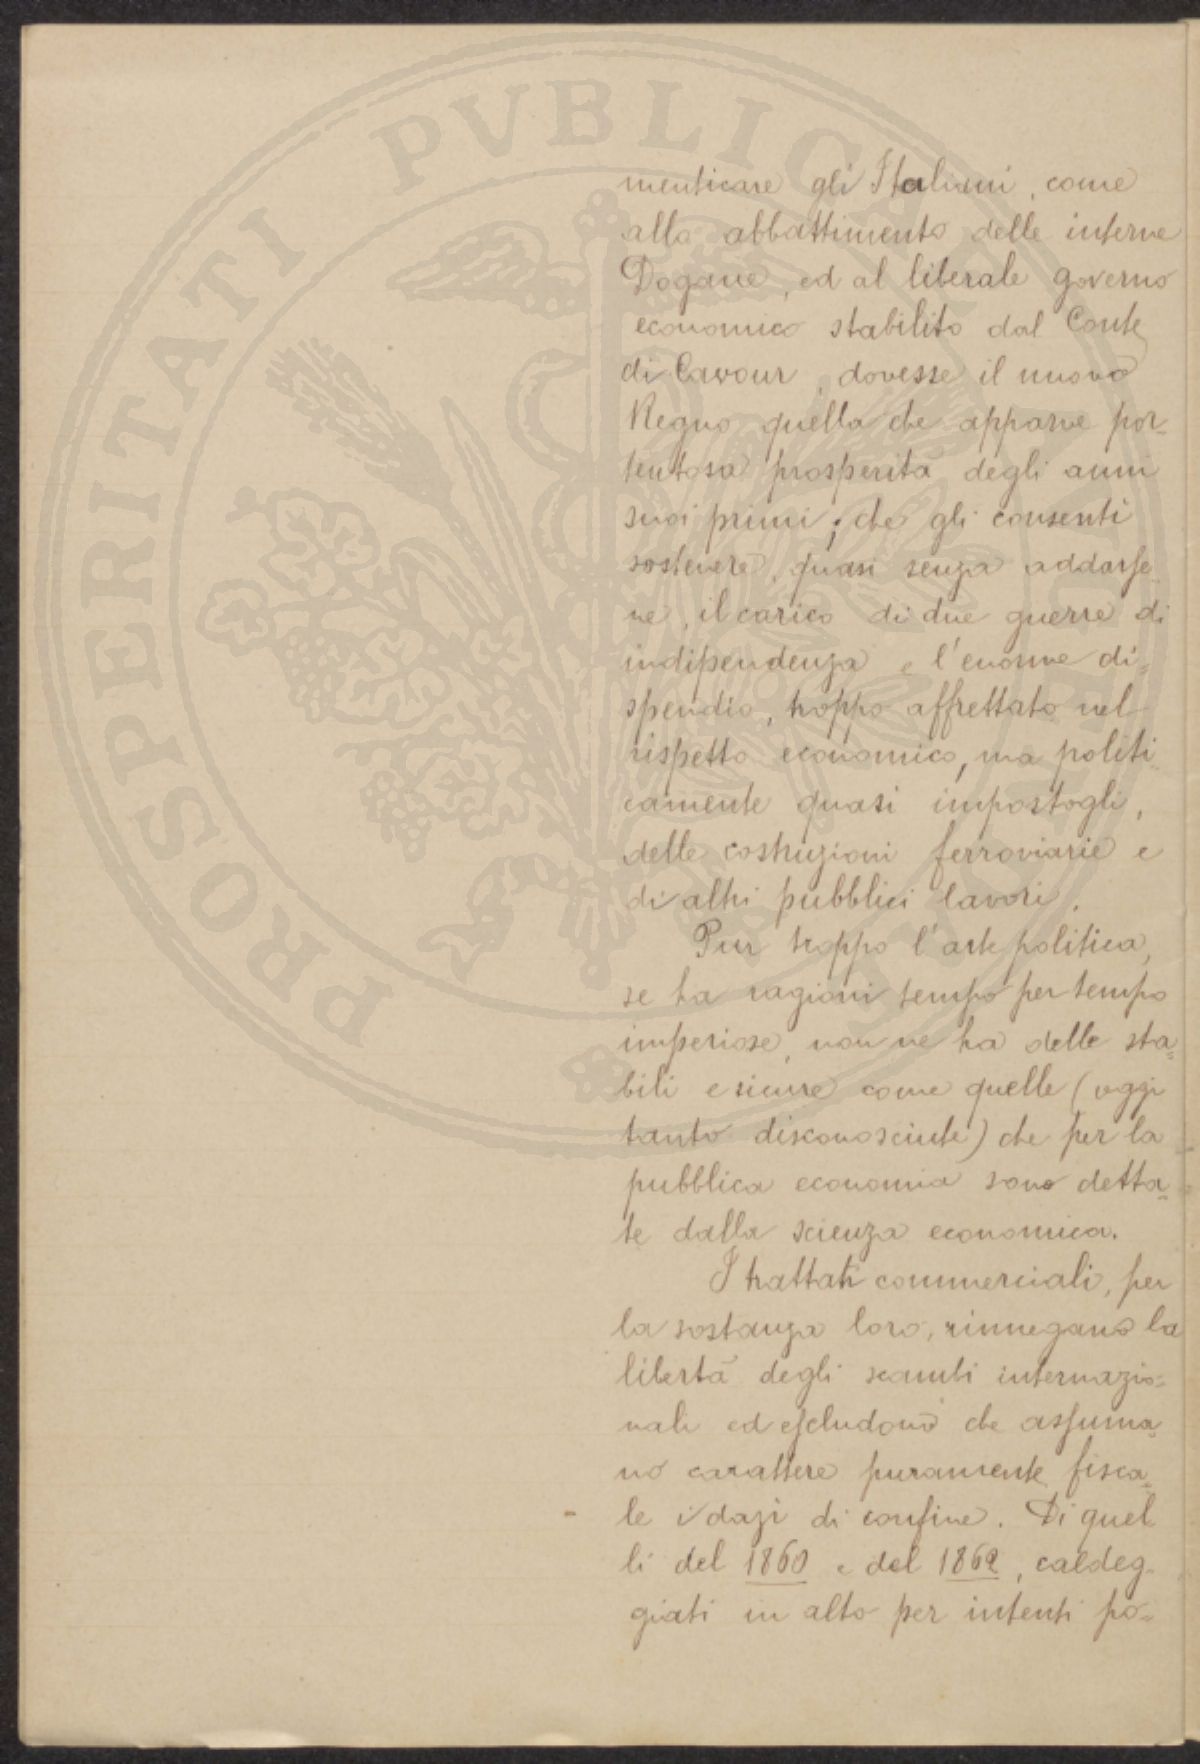 PROSPERITATI PVBLICAE AVGENDAE
menticare gli Italiani, come
allo abbattimento delle interne
Dogane, ed al liberale governo
economico stabilito dal Conte
di Cavour, dovesse il nuovo
Regno quella che apparve por-
tentosa prosperità degli anni
suoi primi; che gli consentì
sostenere, quasi senza addarse
ne, il carico di due guerre di
indipendenza e l'enorme di=
spendio, troppo affrettato nel
rispetto economico, ma politi
camente quasi impostogli,
delle costruzioni ferroviarie e
di altri pubblici lavori.
Pur troppo l'arte politica,
se ha ragioni tempo per tempo
imperiose, non ne ha delle sta=
bili e sicure come quelle (oggi
tanto disconosciute) che per la
pubblica economia sono detta=
te dalla scienza economica.
I trattati commerciali, per
la sostanza loro, rinnegano la
libertà degli scambi internazio=
nali ed escludono che assuma=
no carattere puramente fisca=
le i dazi di confine. Di quel
li del 1860 e del 1862, caldeg-
giati in alto per intenti po=